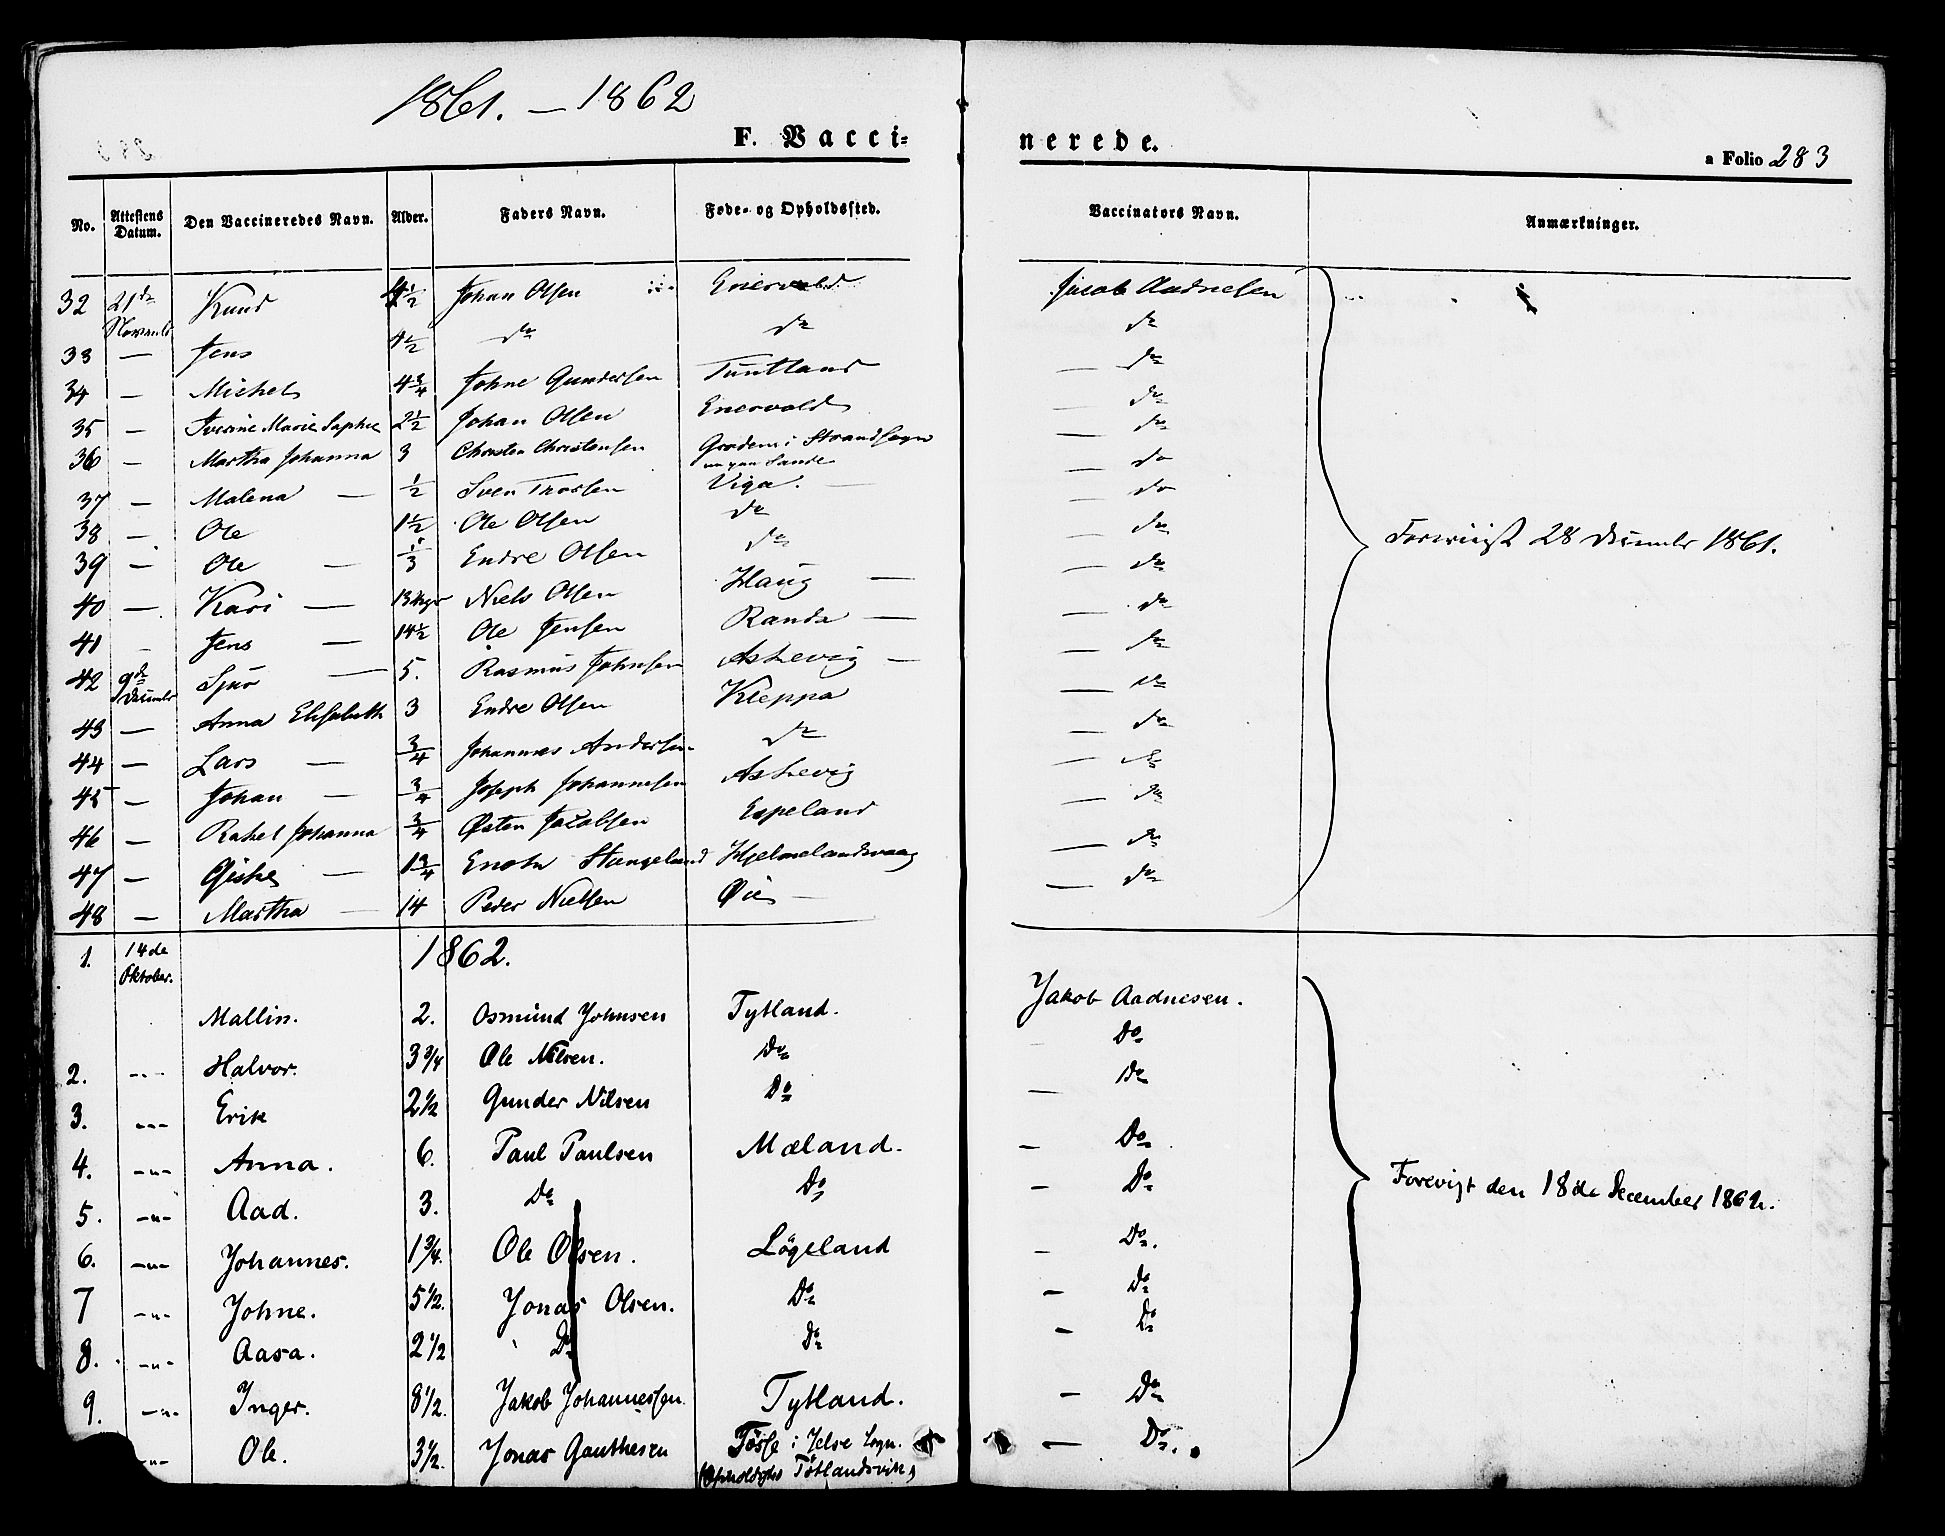 1861. — 1862
F. Vacci-
nerede.
a Folio 283
No. Attestens Datum. Den Vaccineredes Navn. Alder. Faders Navn. Føde- og Opholdssted. Vaccinators Navn. Anmærkninger.
32 21de Novembr Knud 4½ Johan Olsen Enervold Jacob Aadnesen
33 — Jens 1½ do do do
34 — Michel 4¾ Johne Gundersen Tuntland — do
35 — Iverine Marie Sophie 2½ Johan Olsen Enervold — do
36 — Martha Johanna 3 Christen Christensen Grodem i Strand Sogn — do
Sande
37 — Malena — ½ Sven Thorsen Viga. — — do
38 — Ole 1½ Ole Olsen do — do
39 — Ole — ⅓ Endre Olsen do — do
Foreviist 28 December 1861.
40 — Kari — 13 Niels Olsen Haug — — do
41 Jens — 14½ Ole Jensen Randa — — do
42 9de December Sjur — 5. Rasmus Johnsen Askevig — — do
43 — Anna Elisabeth 3 Endre Olsen Kleppa — do
44 — Lars — ¾ Johannes Andersen do — do
45 — Johan — ¾ Joseph Johannesen Askevig — do
46 — Rakel Johanna ¾ Østen Jacobsen Espeland — do
47 — Giske — 1¾ Enok Stangeland Hjelmelandsvaag — do
48 — Martha — 14 Peder Nielsen Øie — — do
1. 14de Oktober. 1862.
Mallin. 2. Osmund Johnsen Tytland. Jakob Aadnesen.
2. -"- Halvor. 3¾ Ole Nilsen. Do Do
3. -"- Erik 2½ Gunder Nilsen Do — Do
4. -"- Anna. 6. Paul Paulsen Mæland. — Do
5. -"- Aad. 3. Do Do — Do
Forevist den 18de December 1862.
6. -"- Johannes. 1¾. Ole Olsen. Løgeland — Do.
7 -"- Johne. 5½. Jonas Olsen. Do — Do
8. -"- Aasa. 2½ Do Do — Do
9. -"- Inger. 8½. Jakob Johannessen. Tytland. — Do
-"- Ole. 3½. Jonas Gauthesen Tøsse i Jelse Sogn. — Do.
(Opholdsted Tøtlandsvik)